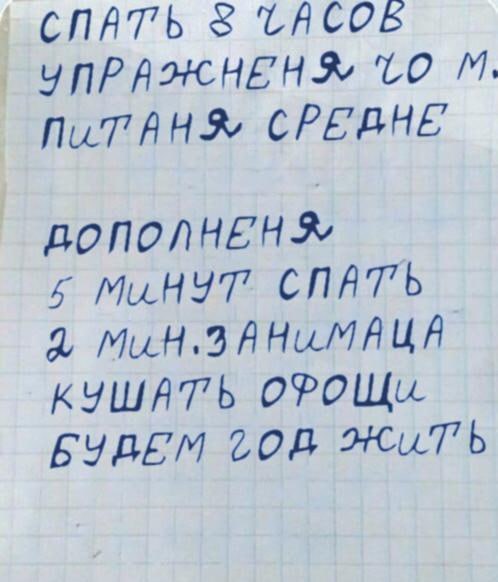 СПАТЬ 8 ЧАСОВ
УПРАЖНЕНЯ 40 М.
ПИТАНЯ СРЕДНЕ
ДОПОЛНЕНЯ
5 МИНУТ СПАТЬ
2 МИН. ЗАНИМАЦА
КУШАТЬ ОФОЩИ
БУДЕМ ГОД ЖИТЬ